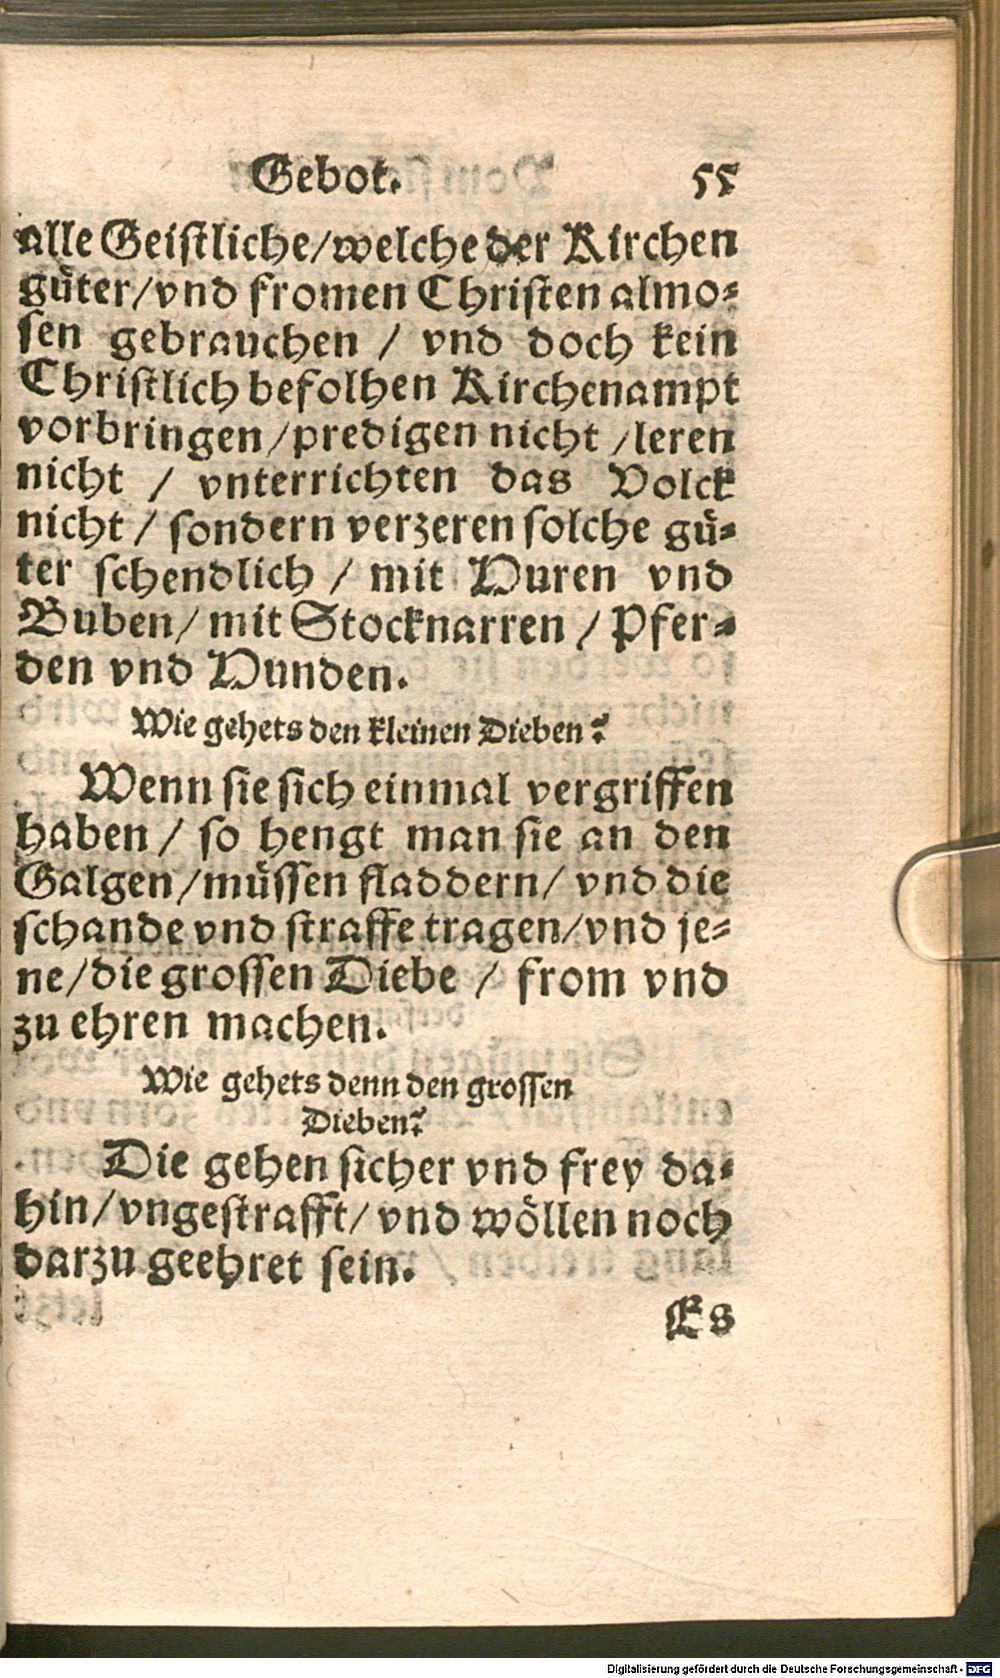 Gebot. 55
alle Geistliche/welche der Kirchen
güter/vnd fromen Christen almo-
sen gebrauchen / vnd doch kein
Christlich befolhen Kirchenampt
vorbringen/predigen nicht /leren
nicht / vnterrichten das Volck
nicht / sondern verzeren solche gü-
ter schendlich / mit Huren vnd
Buben/ mit Stocknarren / Pfer-
den vnd Hunden.
Wie gehets den kleinen Dieben?
Wenn sie sich einmal vergriffen
haben / so hengt man sie an den
Galgen/müssen fladdern/ vnd die
schande vnd straffe tragen/vnd je-
ne/die grossen Diebe / from vnd
zu ehren machen.
Wie gehets denn den grossen
Dieben?
Die gehen sicher vnd frey da-
hin/vngestrafft/ vnd wöllen noch
darzu geehret sein.
Es
Digitalisierung gefördert durch die Deutsche Forschungsgemeinschaft - DFG